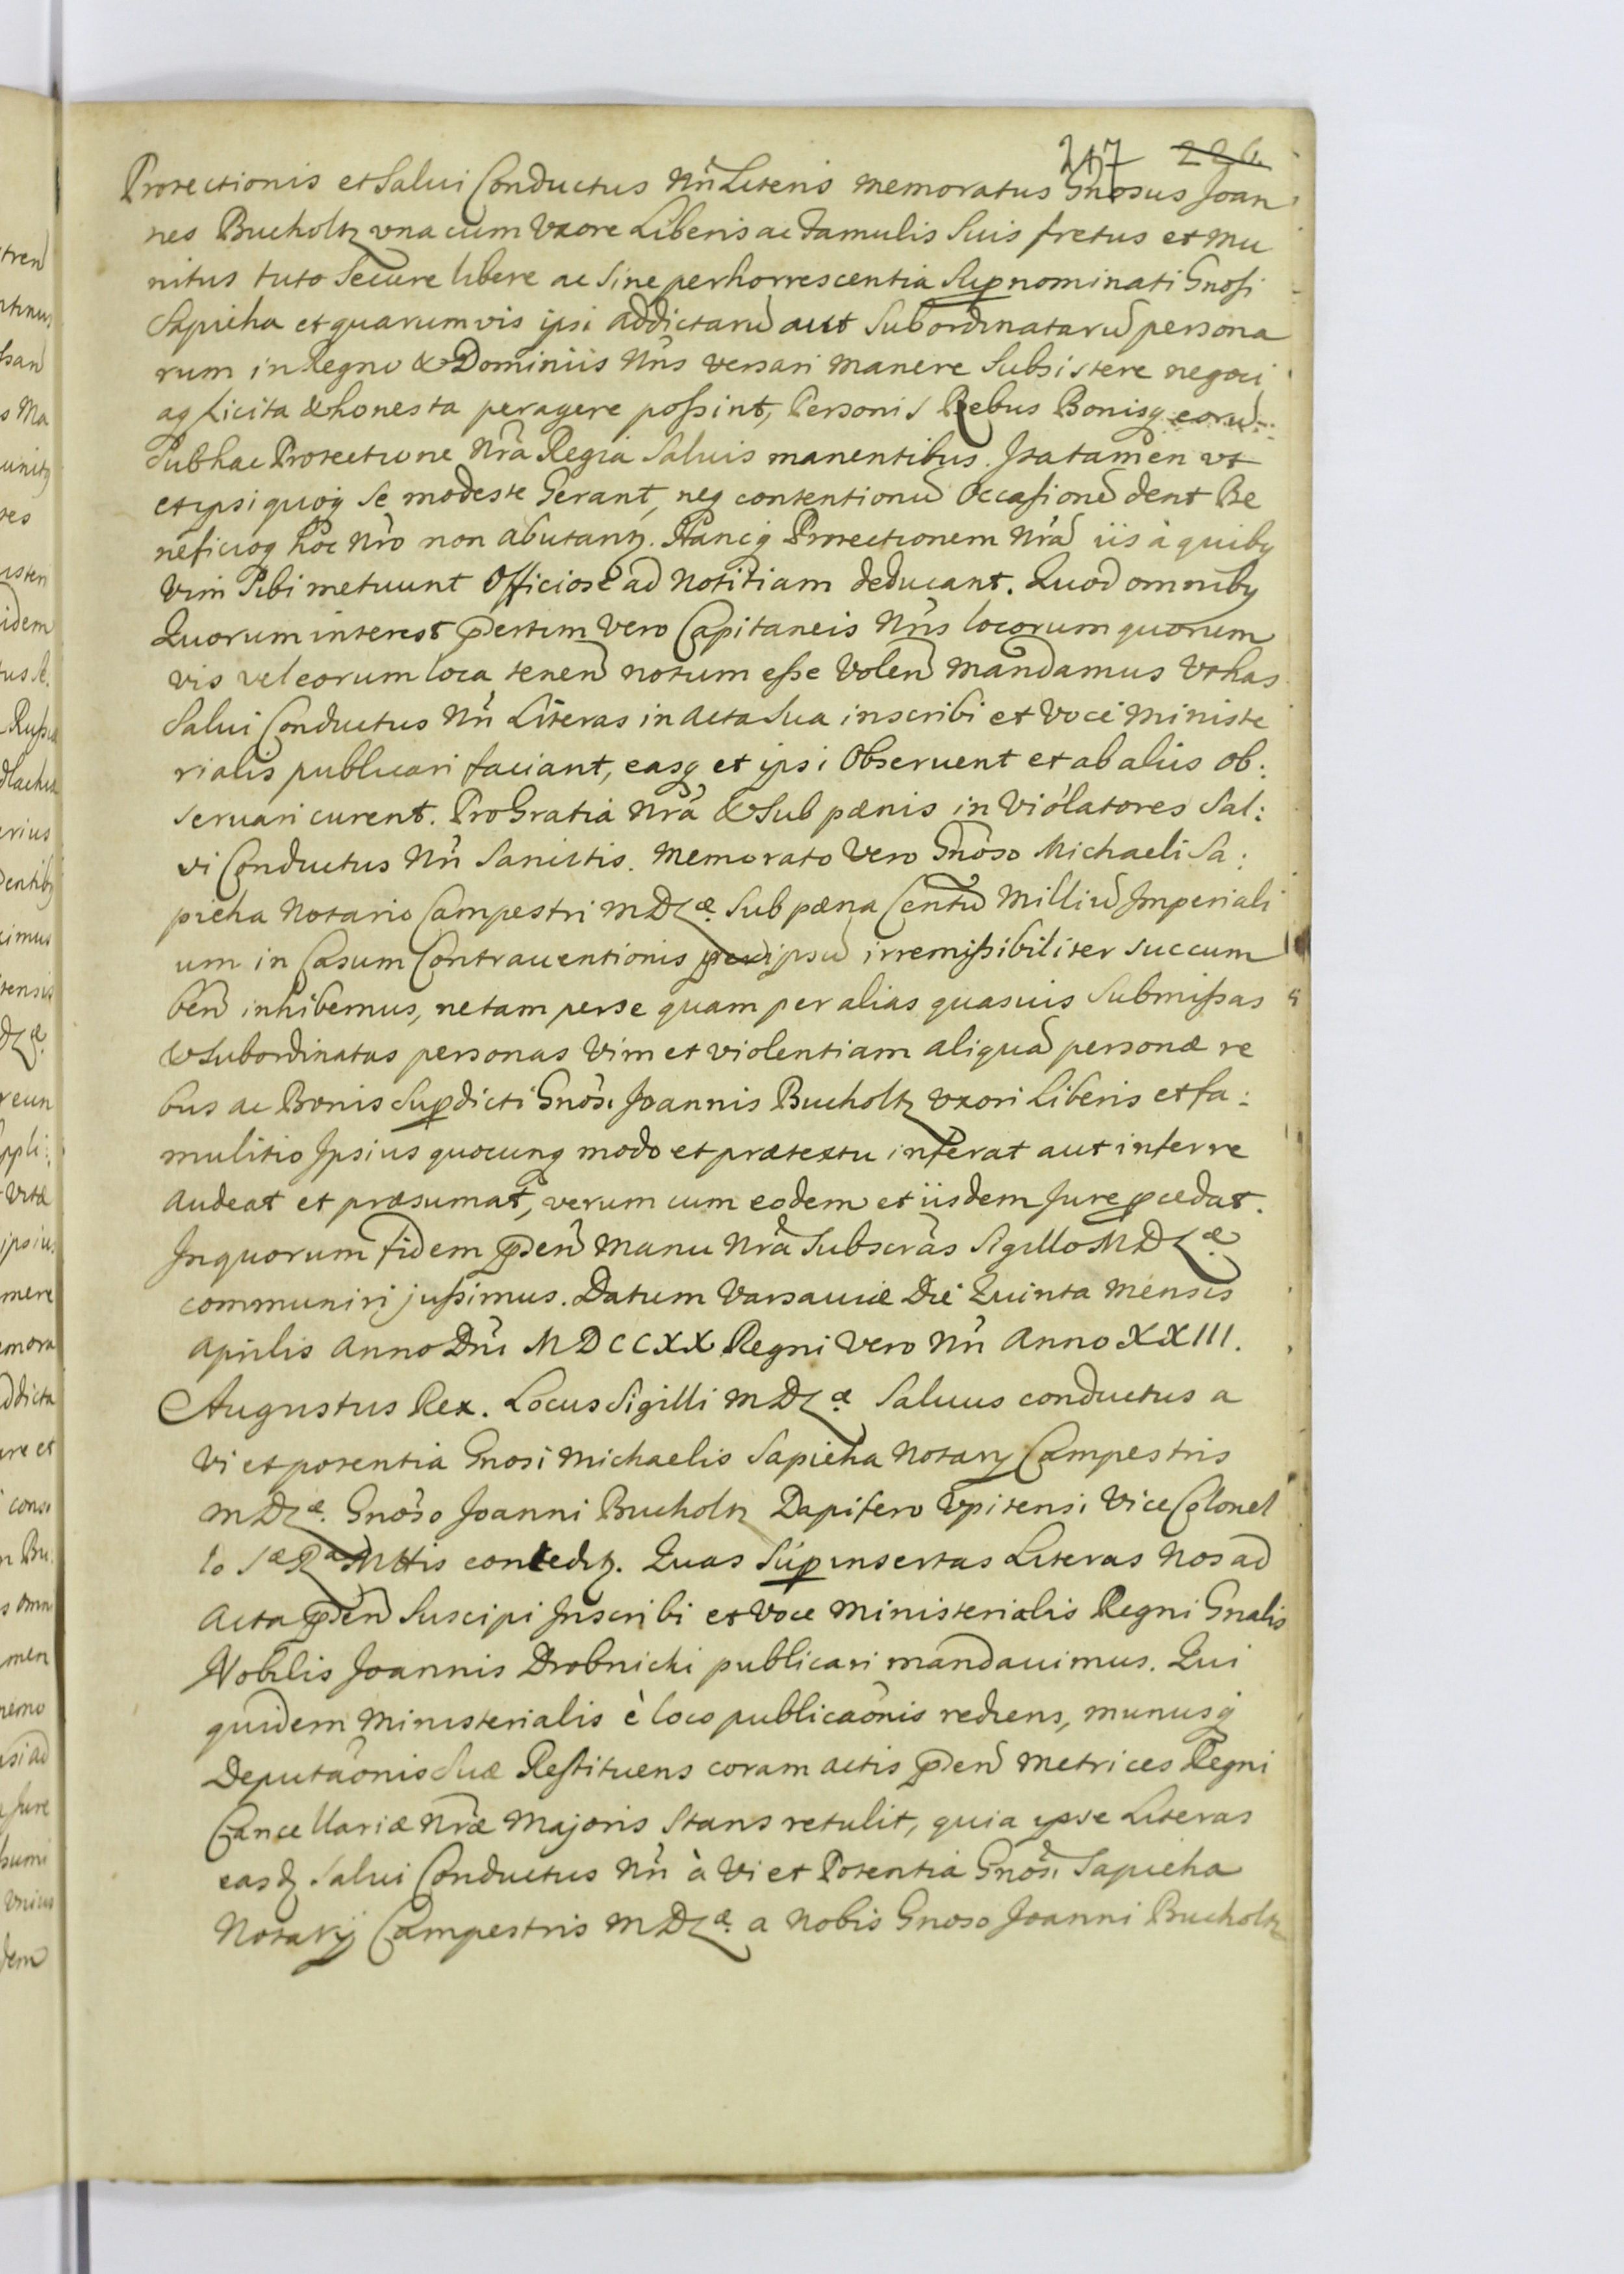 217 226
Protectionis et Salui Conductus Nri Literis memoratus Gnosus Joan
nes Bucholtz vna cum Vxore Liberis ac Famulis Suis fretus et mu
nitus tuto Secure libere ac Sine perhorrescentia Supnominati Gnosi
Sapieha et quarumvis ipsi addictarũ aut Subordinatarũ persona
rum in Regno & Dominiis Nris versari manere Subsistere negoci
aq Licita & honesta peragere possint, Personis Rebus Bonisq eorũ
Sub hac Protectione Nrã Regia Saluis manentibus. Ita tamen vt
et ypsi quoq se modeste Gerant, neq contentionũ Occasionẽ dent Be
neficioq hoc Nrõ non abutantz. Hancq Protectionem Nrã iis à quiby
Vim Sibi metuunt Officiose ad Notitiam deducant. Quod omniby
Quorum interest psertim Vero Capitaneis Nris locorum quorum
vis vel eorum loca tenen notum esse Volen mandamus Vt has
Salui Conductus Nri Literas in acta Sua inscribi et Voce ministe
rialis publicari faciant, easq et ipsi Obseruent et ab aliis ob:
seruari curent. Pro Gratia Nrã & Sub pænis in Violatores Sal:
vi Conductus Nri Sancitis. Memorato Vero Gnoso Michaeli Sa:
pieha Notario Campestri M D L æ. Sub pæna Centũ Milliũ Imperiali
um in Casum Contrauentionis per ipsũ irremissibiliter succum
ben inhibemus, ne tam per se quam per alias quasuis Submissas
& Subordinatas personas Vim et violentiam aliquã personæ re
bus ac Bonis Supdicti Gnosi Joannis Bucholtz vxori Liberis et fa:
mulitio Ipsius quocunq modo et prætextu inferat aut inferre
audeat et præsumat, verum cum eodem et iisdem Jure pcedat.
In quorum fidem psen manu Nrã Subscras Sigillo M D L æ
communiri jussimus. Datum Varsauiæ Die Quinta Mensis
Aprilis Anno Dni M D C C X X Regni Vero Nri Anno X X III.
Augustus Rex. Locus Sigilli M D L æ Saluus conductus a
Vi et potentia Gnosi Michaelis Sapieha Notarij Campestris
M D L æ. Gnoso Joanni Bucholtz Dapifero Vpitensi Vice Colonel
lo S æ R a Mttis conceditz. Quas Supinsertas Literas Nos ad
Acta psen Suscipi Inscribi et Voce Ministerialis Regni Gnalis
Nobilis Joannis Drobnicki publicari mandauimus. Qui
quidem Ministerialis è loco publicaõnis rediens, munusq
Deputaõnis Suæ Restituens coram actis psen Metrices Regni
Cancellariæ Nræ Majoris Stans retulit, quia ipse Literas
easd Salui Conductus Nri à Vi et Potentia Gnosi Sapieha
Notarij Campestris M D L æ. a Nobis Gnoso Joanni Bucholtz